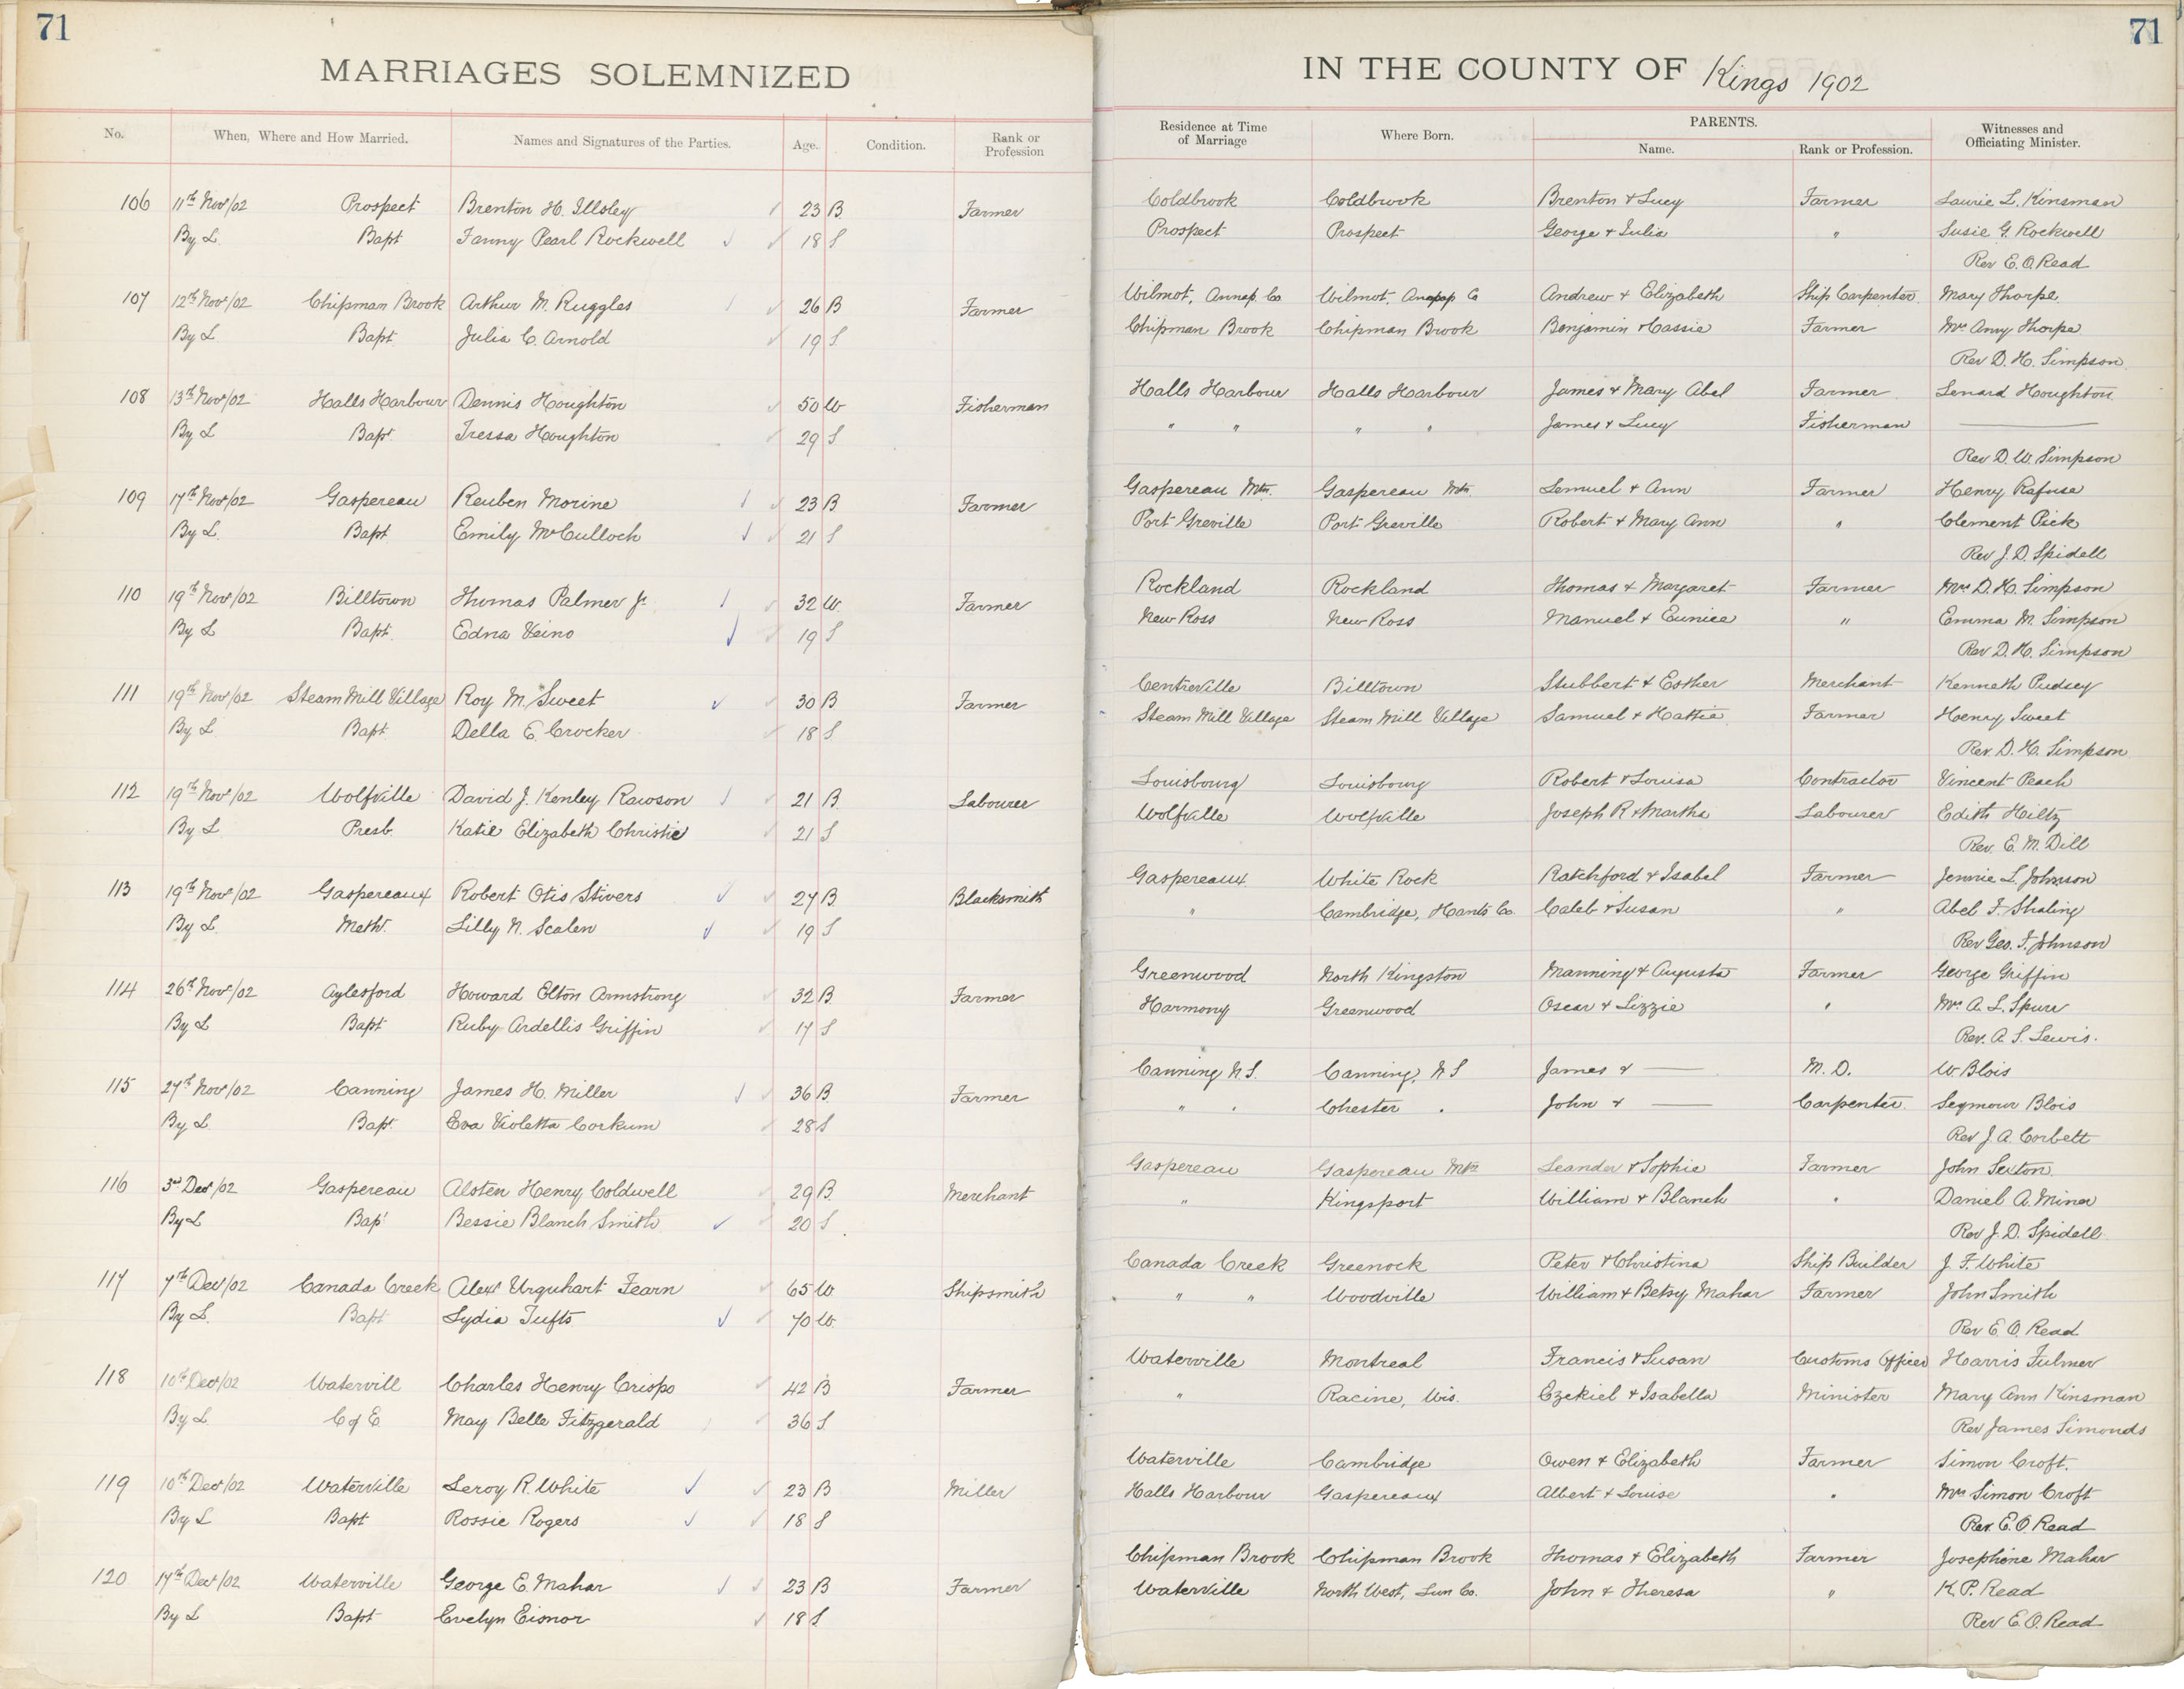 71
MARRIAGES SOLEMNIZED
No. When, Where and How Married. Names and Signatures of the Parties. Age. Condition. Rank or Profession
106 11th Nov/02 Prospect Brenton H. Illsley 23 B Farmer
By L. Bapt Fanny Pearl Rockwell 18 S
107 12th Nov/02 Chipman Brook Arthur M. Ruggles 26 B Farmer
By L Bapt Julia C. Arnold 19 S
108 13th Nov/02 Halls Harbour Dennis Houghton 50 W Fisherman
By L Bapt Tressa Houghton 29 S
109 17th Nov/02 Gaspereau Reuben Morine 23 B Farmer
By L. Bapt Emily McCulloch 21 S
110 19th Nov/02 Billtown Thomas Palmer Jr 32 W. Farmer
By L Bapt. Edna Veino 19 S
111 19th Nov/02 Steam Mill Village Roy M. Sweet 30 B Farmer
By L Bapt Della E. Crocker 18 S
112 19th Nov/02 Wolfville David J. Kenley Rawson 21 B. Labourer
By L Presb. Katie Elizabeth Christie 21 S
113 19th Nov/02 Gaspereaux Robert Otis Stivers 27 B. Blacksmith
By L. Meth. Lilly N. Scalen 19 S
114 26th Nov/02 Aylesford Howard Elton Armstrong 32 B. Farmer
By L Bapt Ruby Ardellis Griffin 17 S
115 27th Nov/02 Canning James H. Miller 36 B. Farmer
By L Bapt. Eva Violetta Corkum 28 S
116 3rd Dec/02 Gaspereau Alsten Henry Coldwell 29 B. Merchant
By L Bapt Bessie Blanch Smith 20 S
117 7th Dec/02 Canada Creek Alexr Urquhart Fearn 65 W Shipsmith
By L. Bapt Lydia Tufts 70 W.
118 10th Dec/02 Watervill Charles Henry Crispo 42 B Farmer
By L C of E. May Belle Fitzgerald 36 S
119 10th Dec/02 Waterville Leroy R. White 23 B Miller
By L Bapt Rossie Rogers 18 S
120 17th Dec/02 Waterville George E. Mahar 23 B Farmer
By L Bapt Evelyn Eisnor 18 S
71
IN THE COUNTY OF Kings 1902
Residence at Time of Marriage Where Born. PARENTS. Name. Rank or Profession. Witnesses and Officiating Minister.
Coldbrook Coldbrook Brenton & Lucy Farmer Laurie L. Kinsman
Prospect Prospect George & Julia " Susie G. Rockwell
Rev E. O. Read
Wilmot, Annap. Co Wilmot, Annap Co Andrew & Elizabeth Ship Carpenter. Mary Thorpe
Chipman Brook Chipman Brook Benjamin & Cassie Farmer Mrs Amy Thorpe
Rev D. H. Simpson
Halls Harbour Halls Harbour James & Mary Abel Farmer Lenard Houghton
" " " " James & Lucy Fisherman
Rev D. W. Simpson
Gaspereau Mtn. Gaspereau Mtn. Lemuel & Ann Farmer Henry Rafuse
Port Greville Port Greville Robert & Mary Ann " Clement Pick
Rev J. D. Spidell
Rockland Rockland Thomas & Margaret Farmer Mrs D. H. Simpson
New Ross New Ross Manuel & Eunice " Emma M. Simpson
Rev D. H. Simpson
Centreville Billtown Stubbert & Esther Merchant Kenneth Pudsey
Steam Mill Village Steam Mill Village Samuel & Hattie Farmer Henry Sweet
Rev. D. H. Simpson
Louisbourg Louisbourg Robert & Louisa Contractor Vincent Peach
Wolfville Wolfville Joseph R & Martha Labourer Edith Hiltz
Rev. E. M. Dill
Gaspereaux White Rock Ratchford & Isabel Farmer Jennie L. Johnson
" Cambridge, Hants Co. Caleb & Susan " Abel F. Shaling
Rev Geo. F. Johnson
Greenwood North Kingston Manning & Augusta Farmer George Griffin
Harmony Greenwood Oscar & Lizzie " Mrs A. L. Spurr
Rev. A. S. Lewis.
Canning N.S. Canning, N S James & — M. D. W. Blois
" " Chester " John & — Carpenter. Seymour Blois
Rev J. A. Corbett
Gaspereau Gaspereau Mtn Leander & Sophie Farmer John Sexton
" Kingsport William & Blanch " Daniel A. Miner
Rev J. D. Spidell
Canada Creek Greenock Peter & Christina Ship Builder J. F. White
" " Woodville William & Betsy Mahar Farmer John Smith
Rev E. O. Read
Waterville Montreal Francis & Susan Customs Officer Harris Fulmer
" Racine, Wis. Ezekiel & Isabella Minister Mary Ann Kinsman
Rev James Simonds
Waterville Cambridge Owen & Elizabeth Farmer Simon Croft.
Halls Harbour Gaspereaux Albert & Louise " Mrs Simon Croft
Rev. E. O. Read
Chipman Brook Chipman Brook Thomas & Elizabeth Farmer Josephine Mahar
Waterville North West, Lun Co. John & Theresa " K. P. Read
Rev E. O. Read